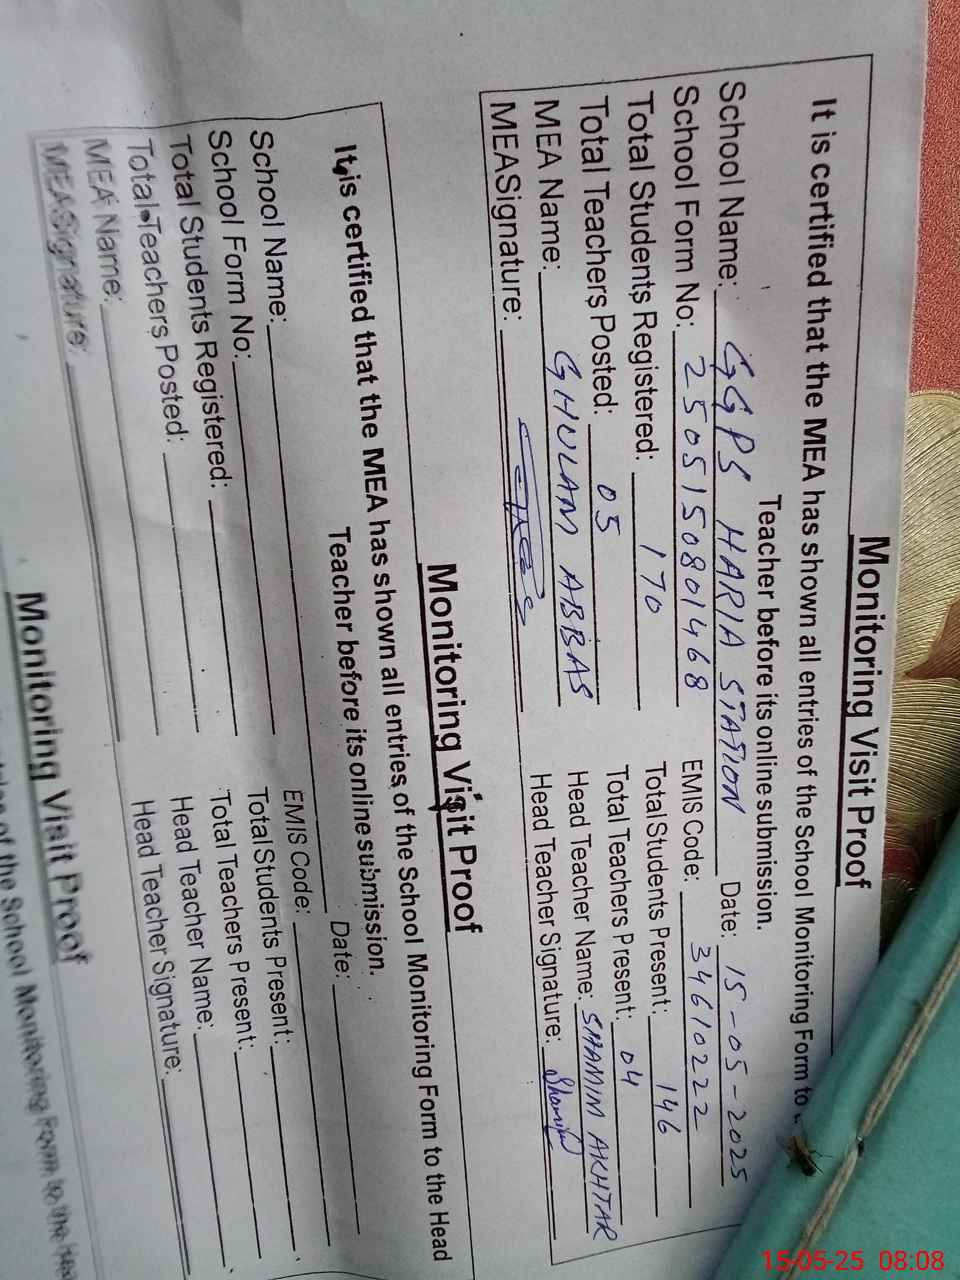 Monitoring Visit Proof
It is certified that the MEA has shown all entries of the School Monitoring Form to
Teacher before its online submission.
School Name: GGPS HARIA STATION Date: 15-05-2025
School Form No: 2505150801468 EMIS Code: 34610222
Total Students Registered: 170 Total Students Present: 146
Total Teachers Posted: 05 Total Teachers Present: 04
MEA Name: GHULAM ABBAS Head Teacher Name: SHAMIM AKHTAR
MEASignature: Head Teacher Signature: Shamim
Monitoring Visit Proof
It is certified that the MEA has shown all entries of the School Monitoring Form to the Head
Teacher before its online submission.
School Name: Date:
School Form No: EMIS Code:
Total Students Registered: Total Students Present:
Total Teachers Posted: Total Teachers Present:
MEA Name: Head Teacher Name:
MEASignature: Head Teacher Signature:
Monitoring Visit Proof
of the School Monitoring Form to the Hea
15-05-25 08:08